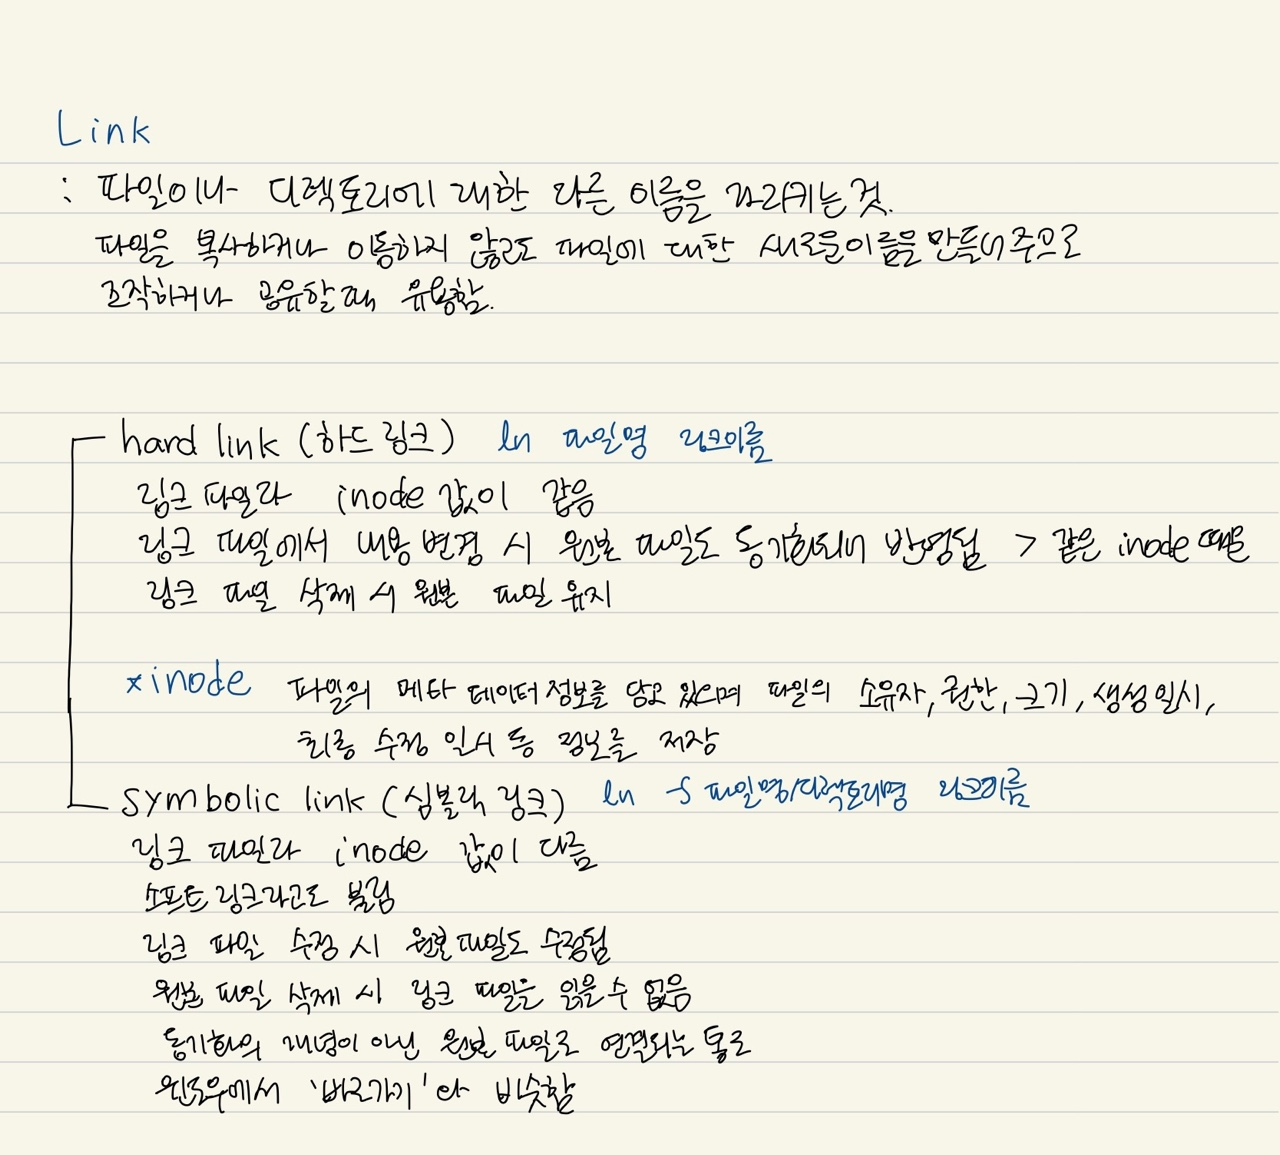 Link
: 파일이나 디렉토리에 대한 다른 이름을 가리키는 것.
파일을 복사하거나 이동하지 않고도 파일에 대한 새로운 이름을 만들어 주므로
조작하거나 공유할 때 유용함.
hard link (하드 링크) ln 파일명 링크이름
링크 파일과 inode 값이 같음
링크 파일에서 내용 변경 시 원본 파일도 동기화되어 반영됨 > 같은 inode 때문
링크 파일 삭제 시 원본 파일 유지
*inode 파일의 메타 데이터 정보를 담고 있으며 파일의 소유자, 권한, 크기, 생성 일시,
최종 수정 일시 등 정보를 저장
symbolic link (심볼릭 링크) ln -s 파일명/디렉토리명 링크이름
링크 파일과 inode 값이 다름
소프트 링크라고도 불림
링크 파일 수정 시 원본 파일도 수정됨
원본 파일 삭제 시 링크 파일을 읽을 수 없음
동기화의 개념이 아닌 원본 파일로 연결되는 통로
윈도우에서 '바로가기'와 비슷함